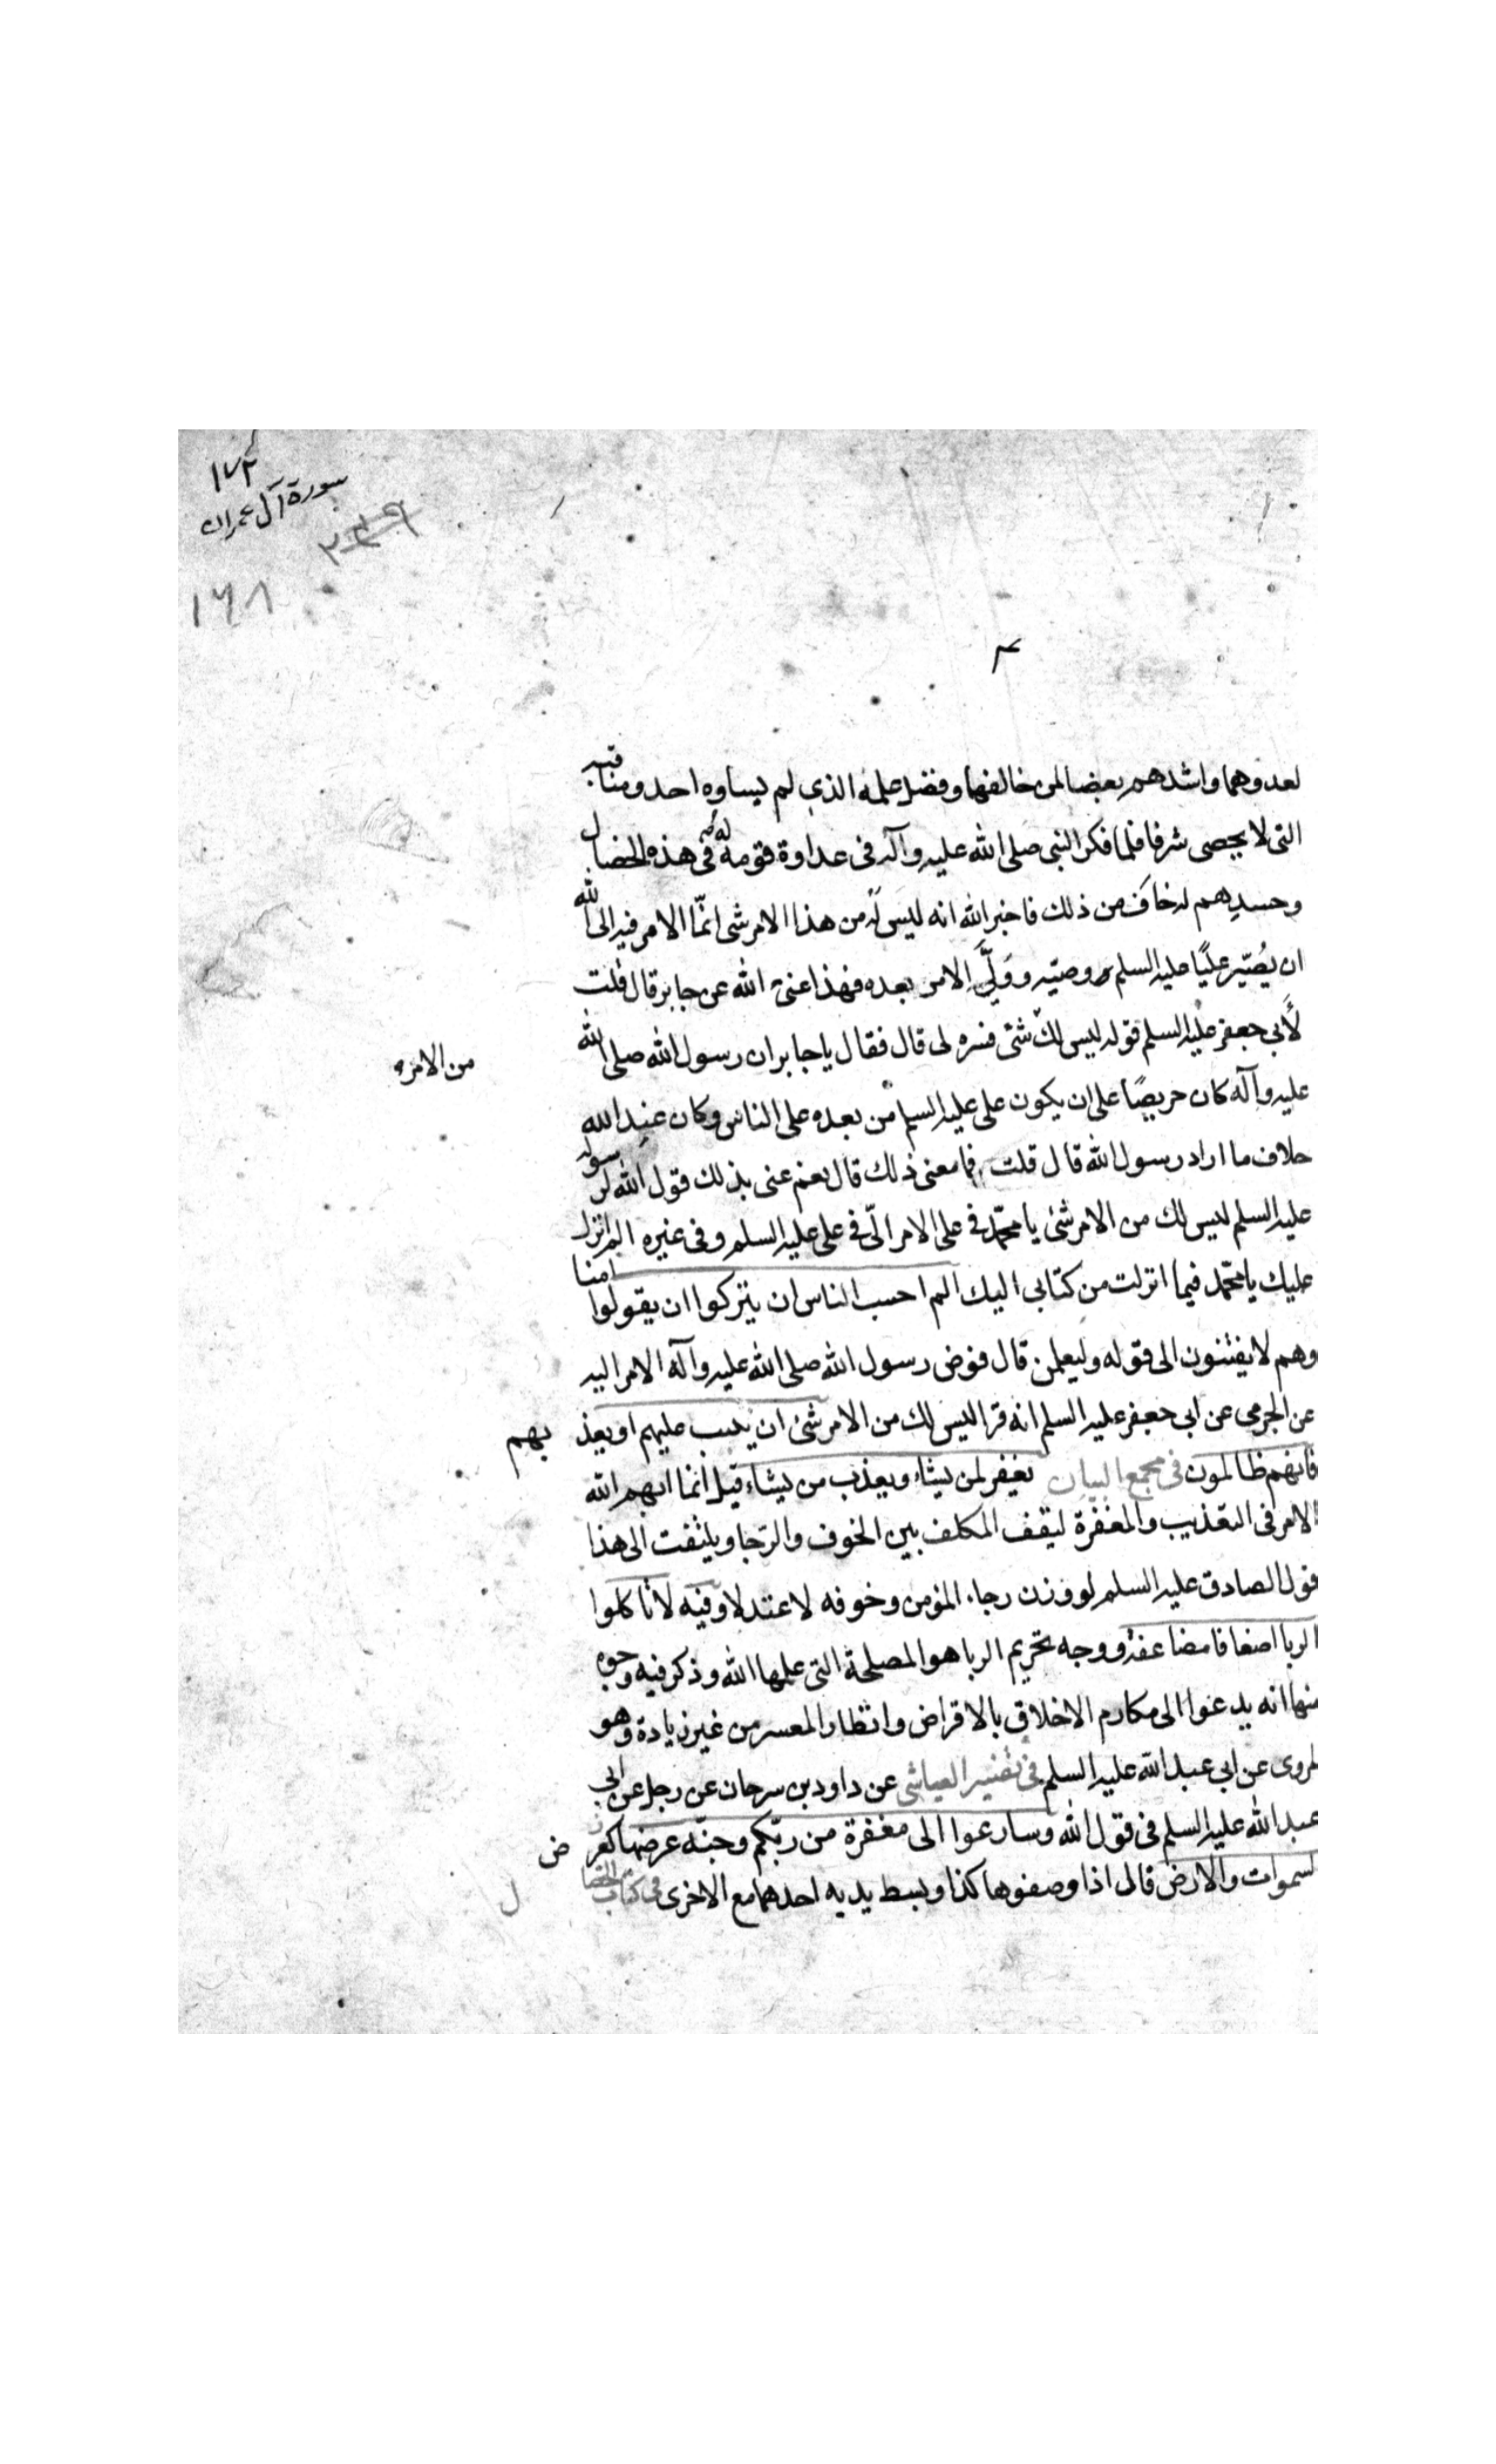 ١٧٢
سورة آل عمران
١٦٨
لعدوهما واشدهم بعضا لمن خالفهما وفضل علمه الذي لم يساوه احد ومناقبه
التى لا يحصى شرفا فلما فكر النبى صلى الله عليه وآله فى عداوة قومه له فى هذه الخصال
وحسدهم له خاف من ذلك فاخبر الله انه ليس له من هذا الامر شى انّما الامر فيه الى الله
ان يُصيّر عليًا عليه السلم وصيّه ووَلَّي الامر بعده فهذا عنى الله عن جابر قال قلت
لأبي جعفر عليه السلم قوله ليس لك شئ فسره لى قال فقال يا جابر ان رسول الله صلى الله
من الامر
عليه وآله كان حريصًا على ان يكون على عليه السلم من بعده على الناس وكان عند الله
خلاف ما اراد رسول الله قال قلت فما معنى ذلك قال نعم عنى بذلك قول الله لرسوله
عليه السلم ليس لك من الامر شئ يا محمّد فى على الامر الّى فى على عليه السلم وفى غيره الم انزل
عليك يا محمّد فيما انزلت من كتابى اليك الم احسب الناس ان يتركوا ان يقولوا امنا
وهم لا يفتنون الى قوله وليعلمن قال فوض رسول الله صلى الله عليه وآله الامر اليه
عن الجرمى عن ابى جعفر عليه السلم انه قرا ليس لك من الامر شئ ان يتب عليهم او يعذبهم
فانهم ظالمون فى مجمع البيان يغفر لمن يشاء ويعذب من يشاء قيل انما ابهم الله
الامر فى التعذيب والمغفرة ليقف المكلف بين الخوف والرّجا ويلتفت الى هذا
قول الصادق عليه السلم لو وزن رجاء المؤمن وخوفه لاعتدلا وفيه لا تاكلوا
الربا اضعافا مضاعفة ووجه تحريم الربا هو المصلحة التى علمها الله وذكر فيه وجوه
منها انه يدعوا الى مكارم الاخلاق بالاقراض وانظار المعسر من غير زيادة وهو
لمروى عن ابى عبد الله عليه السلم فى تفسير العياشى عن داود بن سرحان عن رجل عن ابى
عبد الله عليه السلم فى قول الله وسارعوا الى مغفرة من ربّكم وجنّة عرضها كعرض
لسموات والارض قال اذا وضعوها كذا وبسط يديه احدهما مع الاخرى فى كتاب الخصال